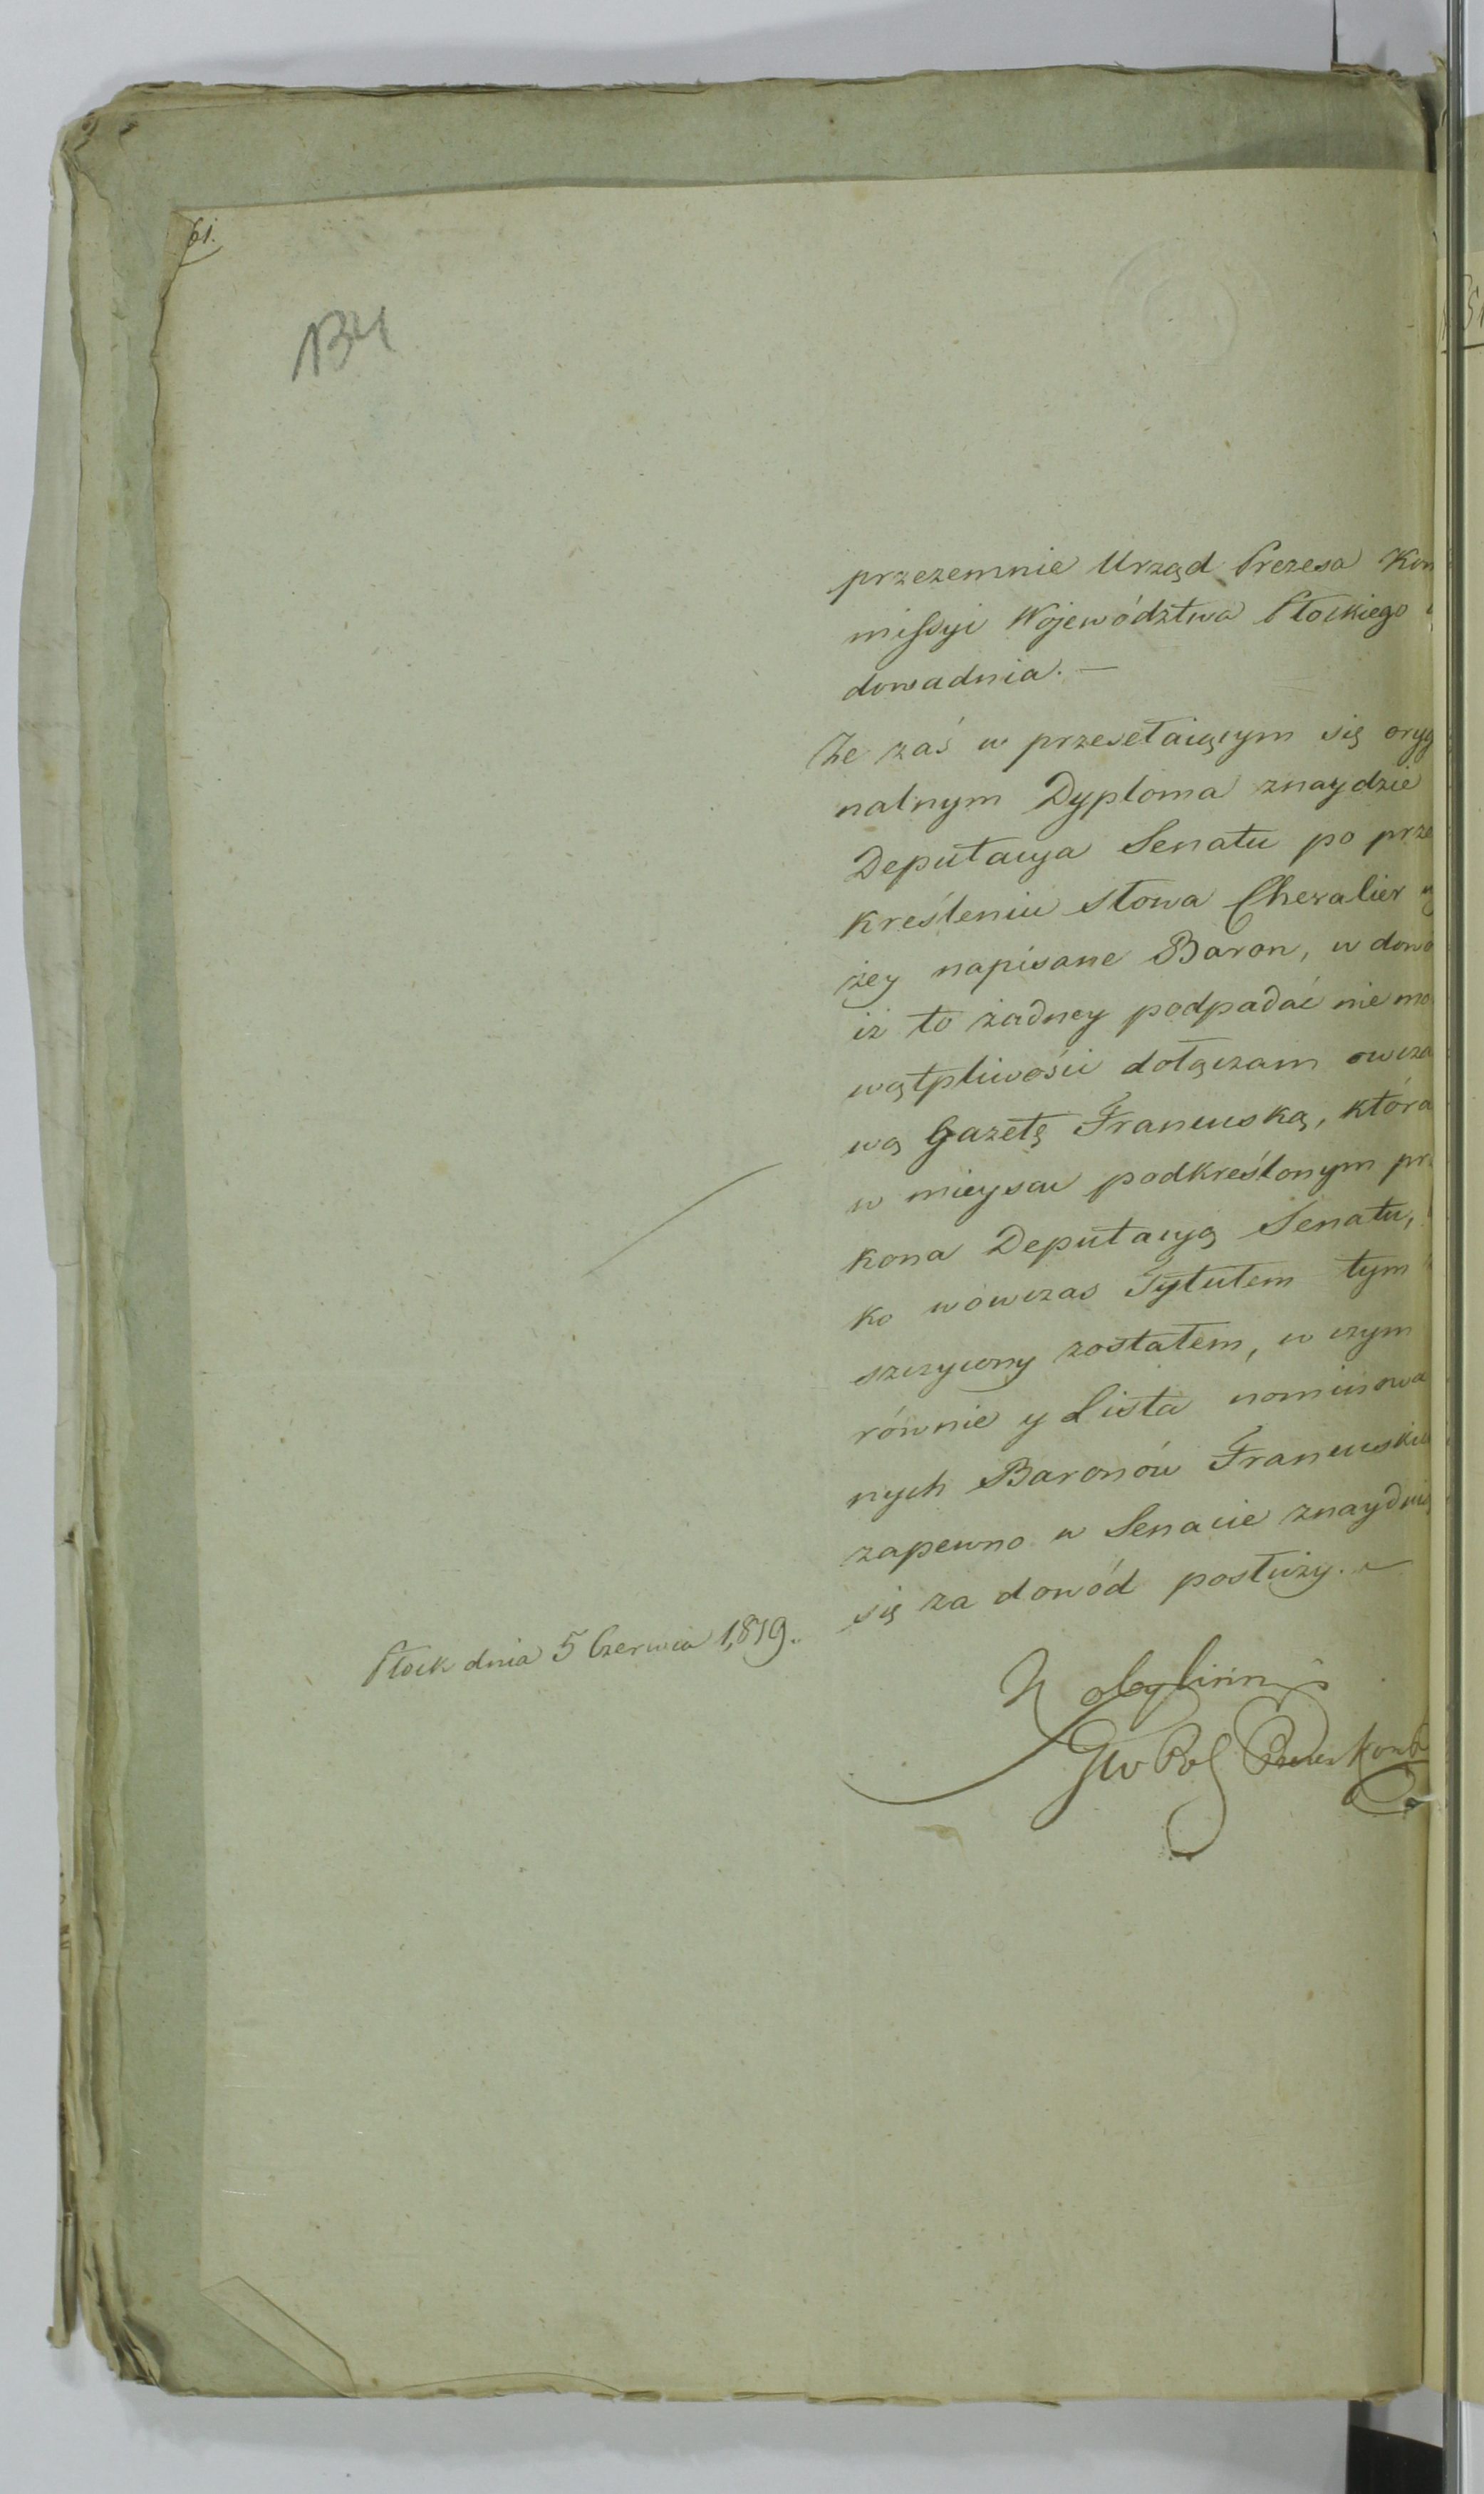 61.
134
przezemnie Urząd Prezesa Kom
missyi Województwa Płockiego
dowadnia. —
Że zaś w przesełaiącym się oryg
nalnym Dyploma znaydzie
Deputacya Senatu po prze
kreśleniu słowa Chevalier
żey napisane Baron, w dowó
iż to żadney podpadać nie mo
wątpliwości dołączam owcza
wą Gazetę Francuską, która
w mieyscu podkreślonym prz
kona Deputacyą Senatu,
ko wówczas Tytułem tym
szczycony zostałem, w czym
równie y Lista nominowa
nych Baronów Francuskich
zapewno w Senacie znayduią
się za dowód posłuży. —
Płock dnia 5 Czerwca 1,819.
Kobyliński